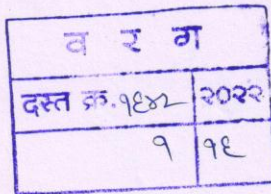 व र ग
दस्त क्र. १६४२ २०२२
१ १६